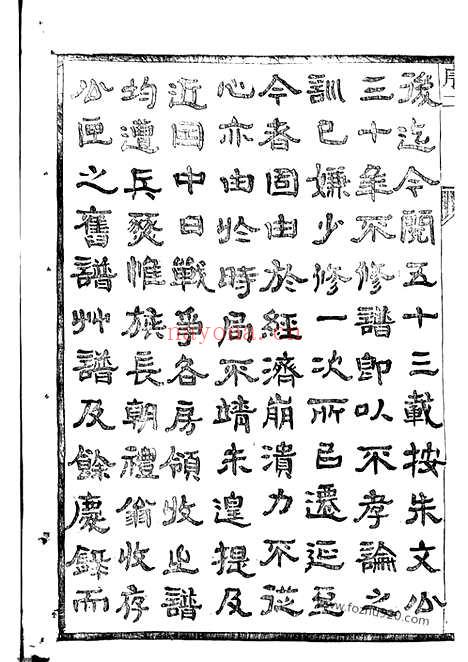 後迄今閱五十三載按朱文公
三十年不修譜即以不孝論之
訓已嫌少修一次所已遷延至
今者固由於經濟崩潰力不從
心亦由於時局不靖未遑提及
近因中日戰爭各房領收之譜
均遭兵燹惟族長朝禮翁收存
公匣之舊譜艸譜及餘慶錄而
nayona.cn
www.fozhu920.com